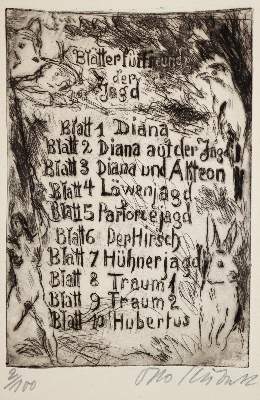 der
Jagd
Blatt 1 Diana
Blatt 2 Diana auf der Jagd
Blatt 3 Diana und Akteon
Blatt 4 Löwenjagd
Blatt 5 Parforcejagd
Blatt 6 Der Hirsch
Blatt 7 Hühnerjagd
Blatt 8 Traum 1
Blatt 9 Traum 2
Blatt 10 Hubertus
2/100 Otto